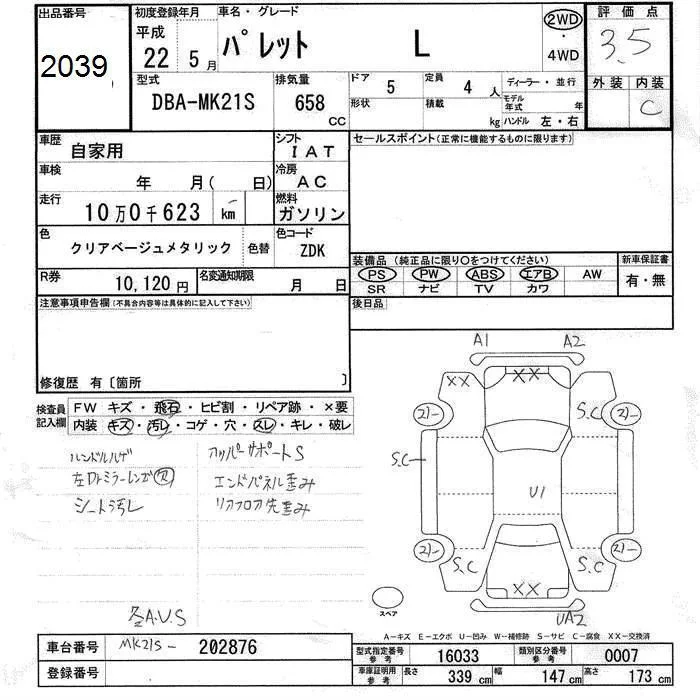 出品番号
2039
初度登録年月
平成
22 5月
車名・グレード
パレット L
2WD
・
4WD
評価点
3.5
外装 内装
C
型式
DBA-MK21S
排気量
658
CC
ドア 5
定員 4 人
ディーラー・並行
形状
積載 kg
モデル年式 年
ハンドル 左・右
車歴
自家用
シフト
IAT
セールスポイント(正常に機能するものに限ります)
車検
年 月( 日)
冷房
AC
走行
10万0千623 km
燃料
ガソリン
色
クリアベージュメタリック
色替
色コード
ZDK
装備品 (純正品に限り○をつけてください)
新車保証書
PS PW ABS エアB AW
SR ナビ TV カワ
有・無
R券
10,120円
名変通知期限
月 日
後日品
注意事項申告欄(不具合内容等は具体的に記入して下さい)
修復歴 有〔箇所 〕
検査員記入欄
FW キズ・飛石・ヒビ割・リペア跡・×要
内装 キズ・汚レ・コゲ・穴・スレ・キレ・破レ
ハンドルハゲ
左ドアミラーレンズ欠
シート汚レ
アッパーサポートS
エンドパネル歪み
リアフロア先歪み
各A.U.S
A1 A2
XX XX
21- S.C 21-
S.C
U1
21- 21-
S.C XX S.C
UA2
スペア
A-キズ E-エクボ U-凹み W-補修跡 S-サビ C-腐食 XX-交換済
車台番号
MK21S- 202876
登録番号
型式指定番号
参考
16033
類別区分番号
参考
0007
車庫証明用
参考
長さ 339 cm
幅 147 cm
高さ 173 cm